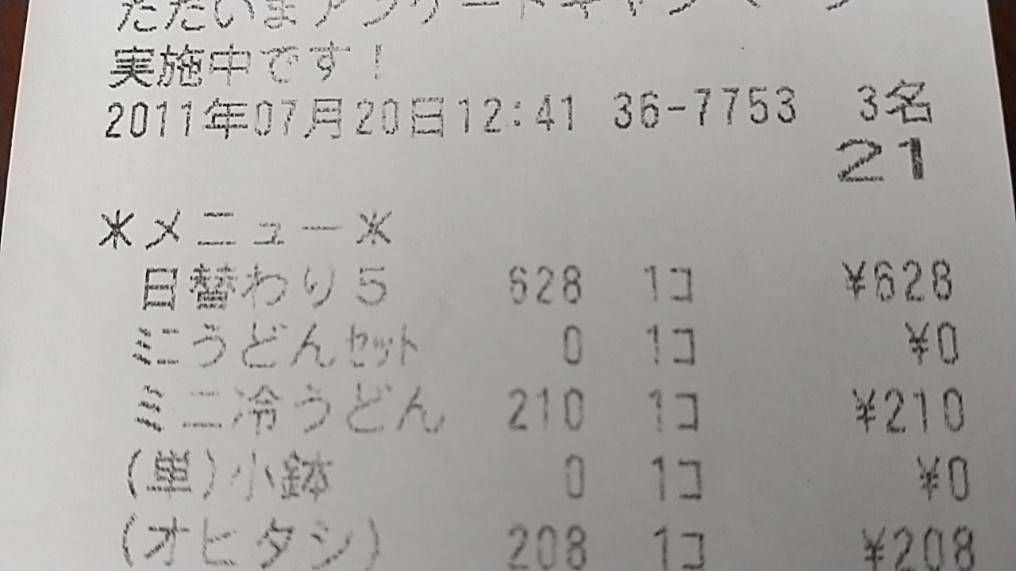 ただいまアンケートキャンペーン
実施中です!
2011年07月20日12:41 36-7753 3名
21
*メニュー*
日替わり5 628 1コ ¥628
ミニうどんセット 0 1コ ¥0
ミニ冷うどん 210 1コ ¥210
(単)小鉢 0 1コ ¥0
(オヒタシ) 208 1コ ¥208